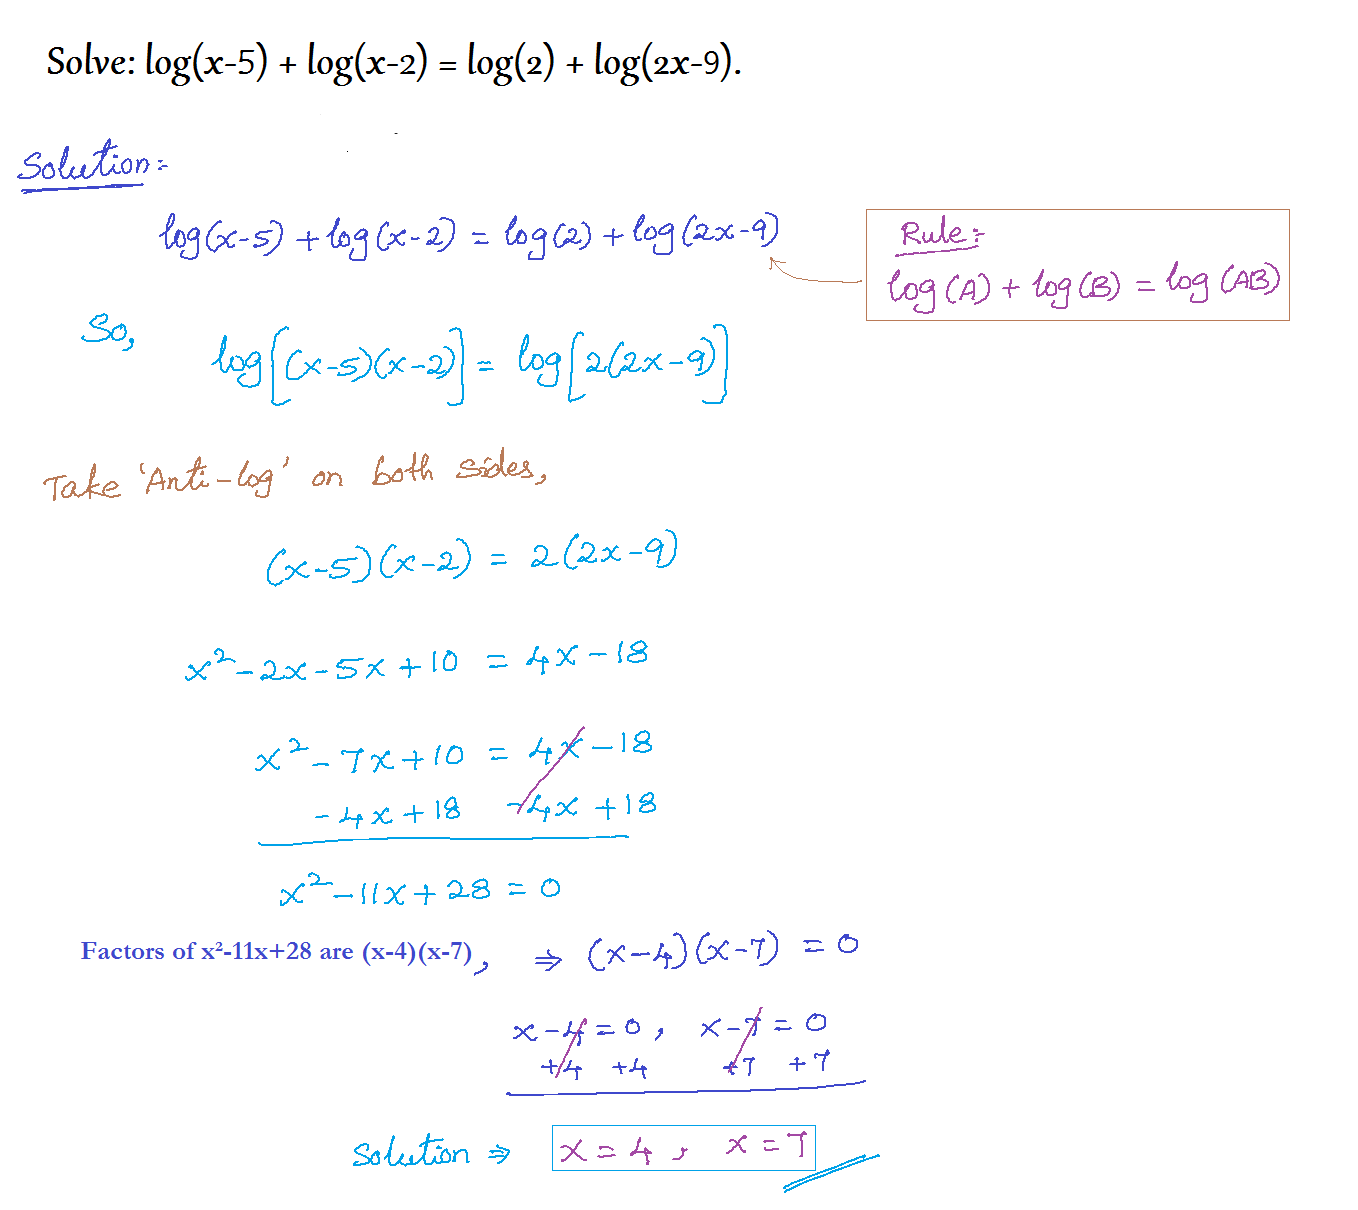 Solve: log(x-5) + log(x-2) = log(2) + log(2x-9).
Solution:-
log(x-5) + log(x-2) = log(2) + log(2x-9)
Rule:-
log(A) + log(B) = log(AB)
So,
log[(x-5)(x-2)] = log[2(2x-9)]
Take 'Anti-log' on both sides,
(x-5)(x-2) = 2(2x-9)
x²-2x-5x+10 = 4x-18
x²-7x+10 = 4x-18
-4x+18 -4x+18
x²-11x+28 = 0
Factors of x²-11x+28 are (x-4)(x-7), ⇒ (x-4)(x-7) = 0
x-4=0, x-7=0
+4 +4 +7 +7
Solution ⇒ x=4, x=7